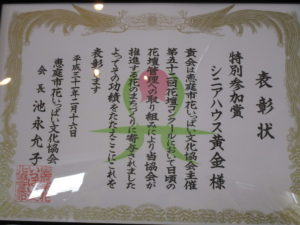 表彰状
特別参加賞
シニアハウス黄金 様
貴会は恵庭市花いっぱい文化協会主催
第五十二回花壇コンクールにおいて日頃の
花壇管理への取り組みにより当協会が
推進する花のまちづくりに寄与されました
よってその功績をたたえここにこれを
表彰します
平成三十一年二月十六日
恵庭市花いっぱい文化協会
会長 池永允子